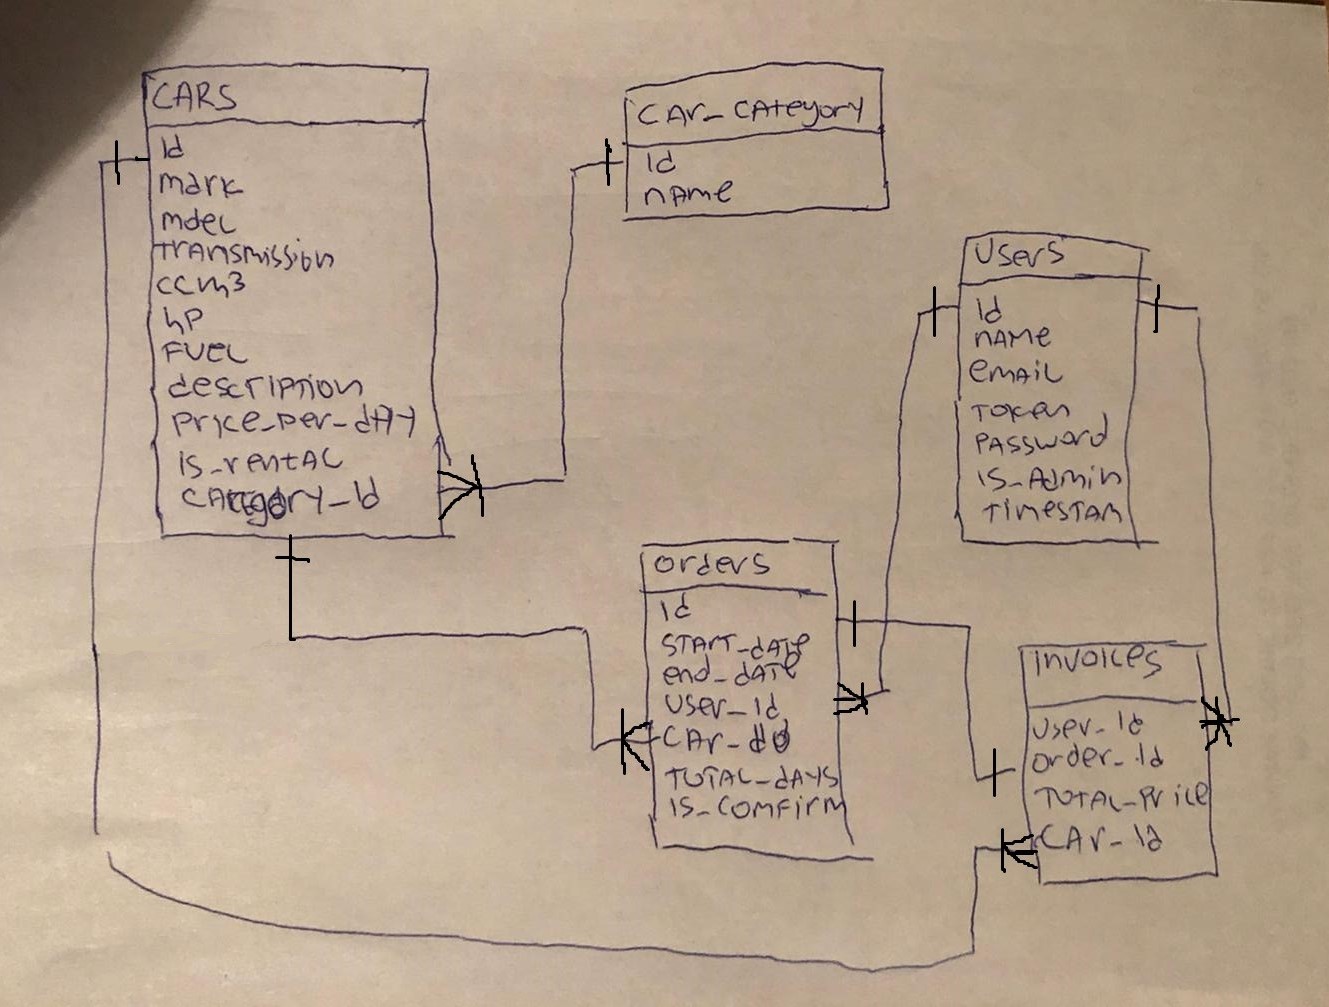 CARS
Id
mark
mdel
Transmission
ccm3
hp
FUEL
description
price_per_dAY
is_rentAL
CAtegory_Id
CAr_CAtegory
Id
nAme
Users
Id
nAme
emAIL
Token
PAssword
is_Admin
Timestam
orders
Id
START_dATe
end_dATe
User_Id
CAr_
TOTAL_dAYS
IS_COMFirm
invoices
User_Id
Order_Id
TOTAL_Price
CAr_Id